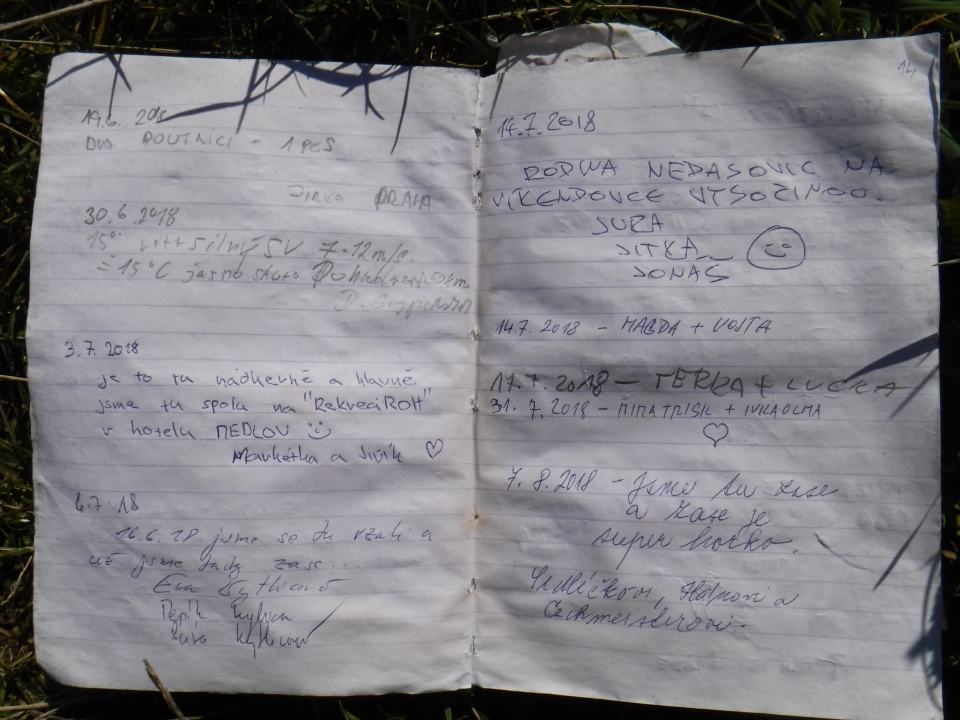 19.6. 2018
DVA POUTNÍCI + 1 PES
JIRKA PRAHA
30.6.2018
15° vítr silný SV 7-12 m/s.
= 15°C jasno skoro
3.7.2018
je to tu nádherně a hlavně
jsme tu spolu na "RekreaciROH"
v hotelu MEDLOV
Markétka a Jiřík
6.7.18
16.6.18 jsme se tu vzali a
už jsme tady zase...
Eva
14
14.7.2018
RODINA NEDASOVIC NA
VÍKENDOVCE VYSOČINOU.
JURA
JITKA
JONÁŠ
14.7.2018 - MAGDA + VOJTA
17.7.2018 - TERKA + LUCKA
31.7.2018 -
7.8.2018 - Jsme tu zase
a zase je
super horko.